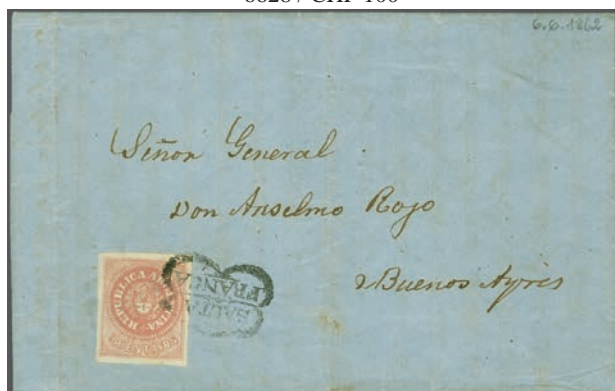 6.6.1862
Señor General
Don Anselmo Rojo
Buenos Ayres
REPUBLICA ARGENTINA
SALTA
FRANCA